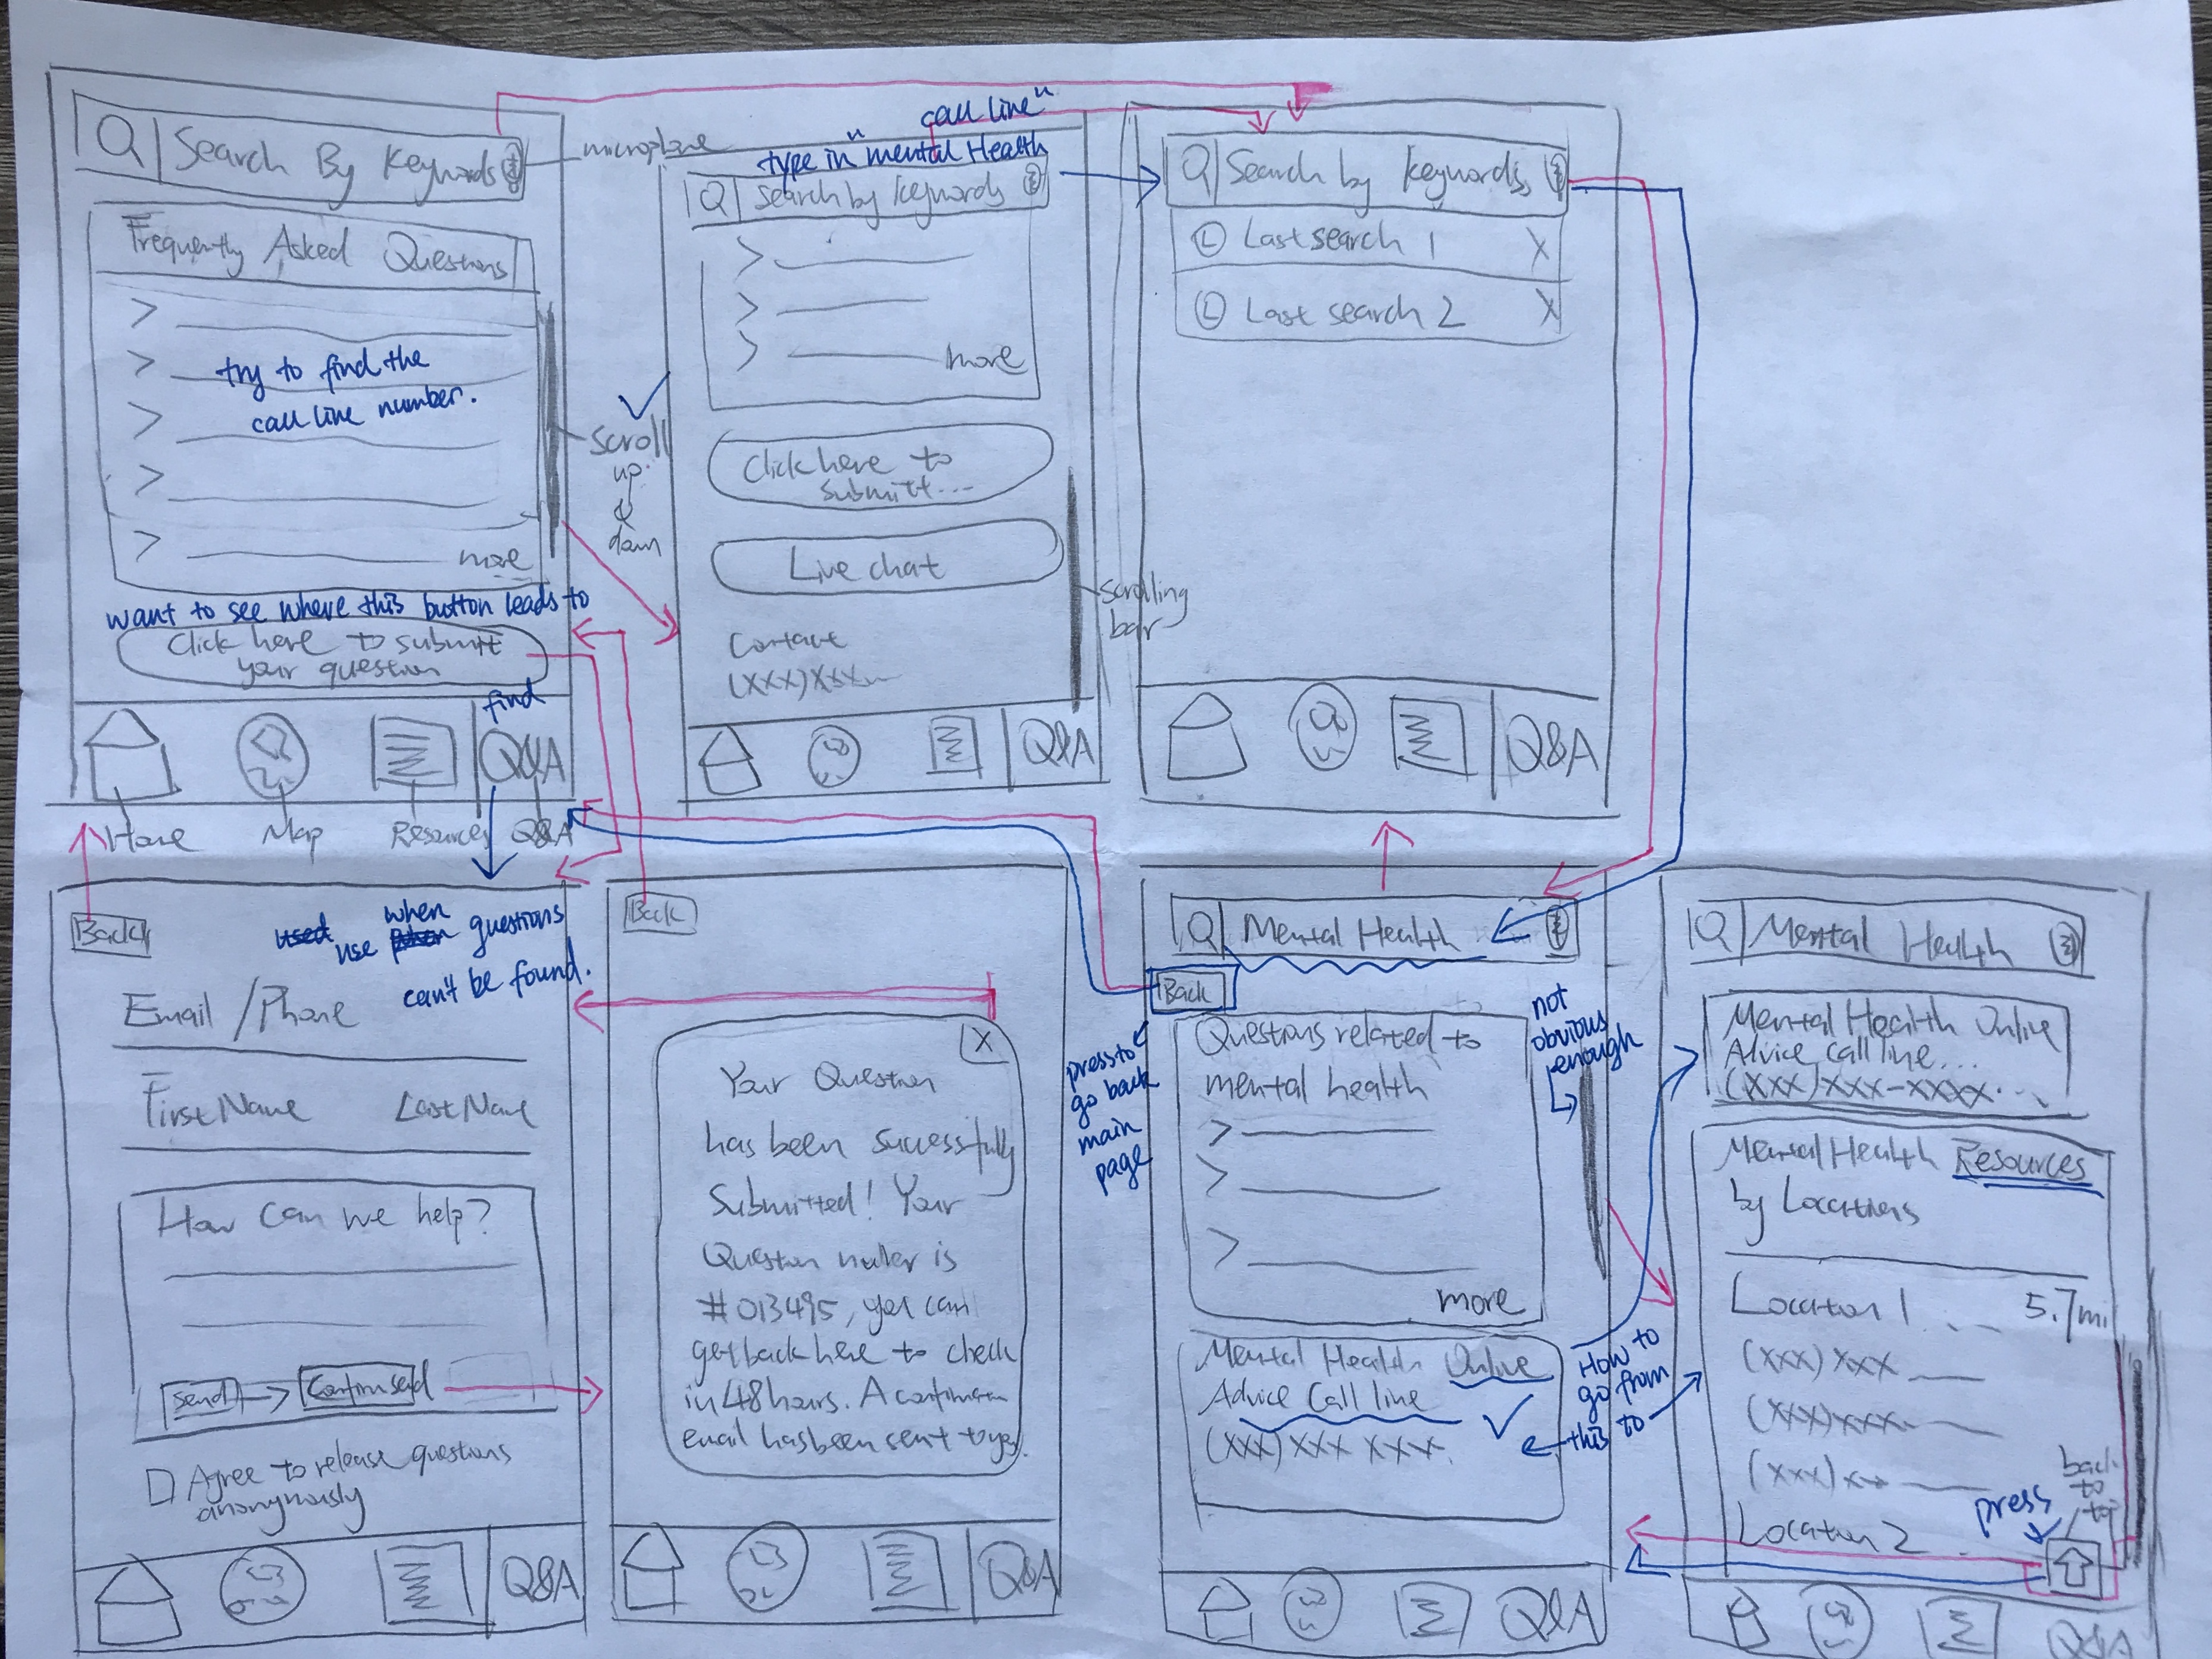 Search By Keywords
microphone
Frequently Asked Questions
try to find the
call line number.
more
scroll
up
&
down
want to see where this button leads to
Click here to submitt
your question
find
Q&A
Home
Map
Resources
Q&A
call line"
type in "mental Health
Search by keywords
more
Click here to
submitt...
Live chat
Contact
(XXX)XXX
scrolling
bar
Q&A
Search by keywords
Last search 1 X
Last search 2 X
Q&A
Back
used when
use questions
can't be found.
Email / Phone
First Name Last Name
How can we help?
send Confirm send
Agree to release questions
anonymously
Q&A
Back
X
Your Question
has been successfully
Submitted! Your
Question number is
#013495, you can
get back here to check
in 48 hours. A confirmation
email has been sent to you.
Q&A
Mental Health
Back
press to
go back
main
page
not
obvious
enough
Questions related to
mental health
more
Mental Health Online
Advice Call line
(XXX) XXX XXX.
How to
go from
this to
Q&A
Mental Health
Mental Health Online
Advice call line...
(XXX)XXX-XXXX...
Mental Health Resources
by Locations
Location 1 ... 5.7mi
(XXX) XXX
(XXX) XXX
(XXX) XX
back
to
top
press
Location 2
Q&A